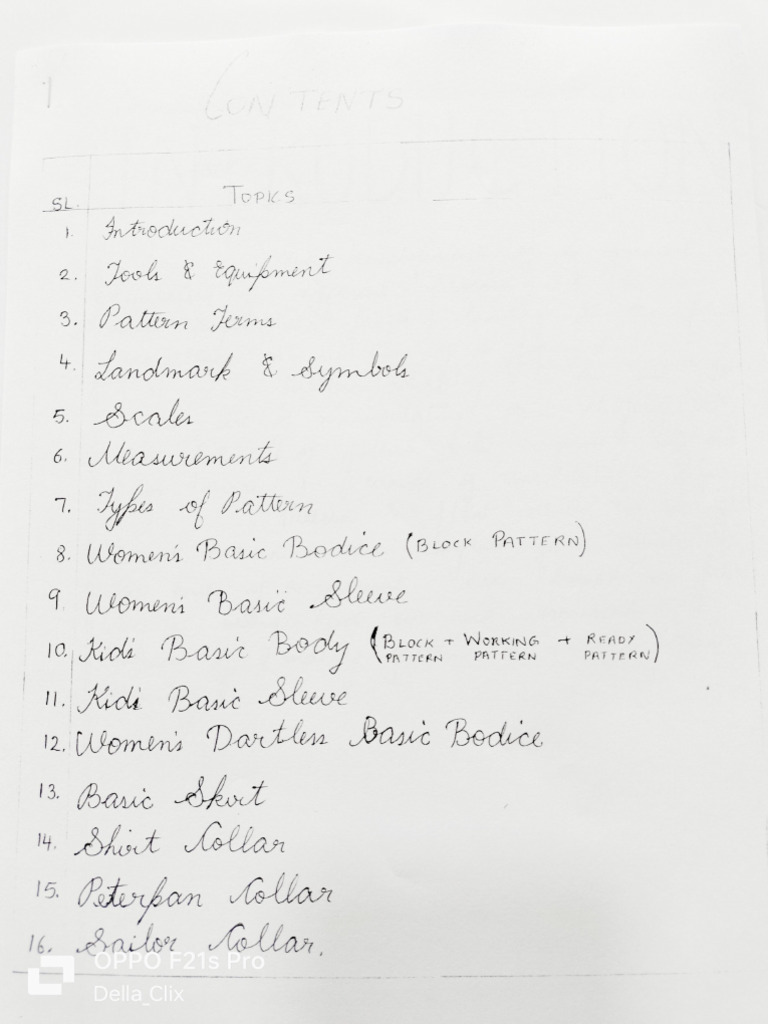 1
CONTENTS
SL. TOPICS
1. Introduction
2. Tools & Equipment
3. Pattern Terms
4. Landmark & Symbols
5. Scales
6. Measurements
7. Types of Pattern
8. Women's Basic Bodice (BLOCK PATTERN)
9. Women's Basic Sleeve
10. Kid's Basic Body (BLOCK PATTERN + WORKING PATTERN + READY PATTERN)
11. Kid's Basic Sleeve
12. Women's Dartless Basic Bodice
13. Basic Skirt
14. Shirt Collar
15. Peterpan Collar
16. Sailor Collar.
OPPO F21s Pro
Della_Clix